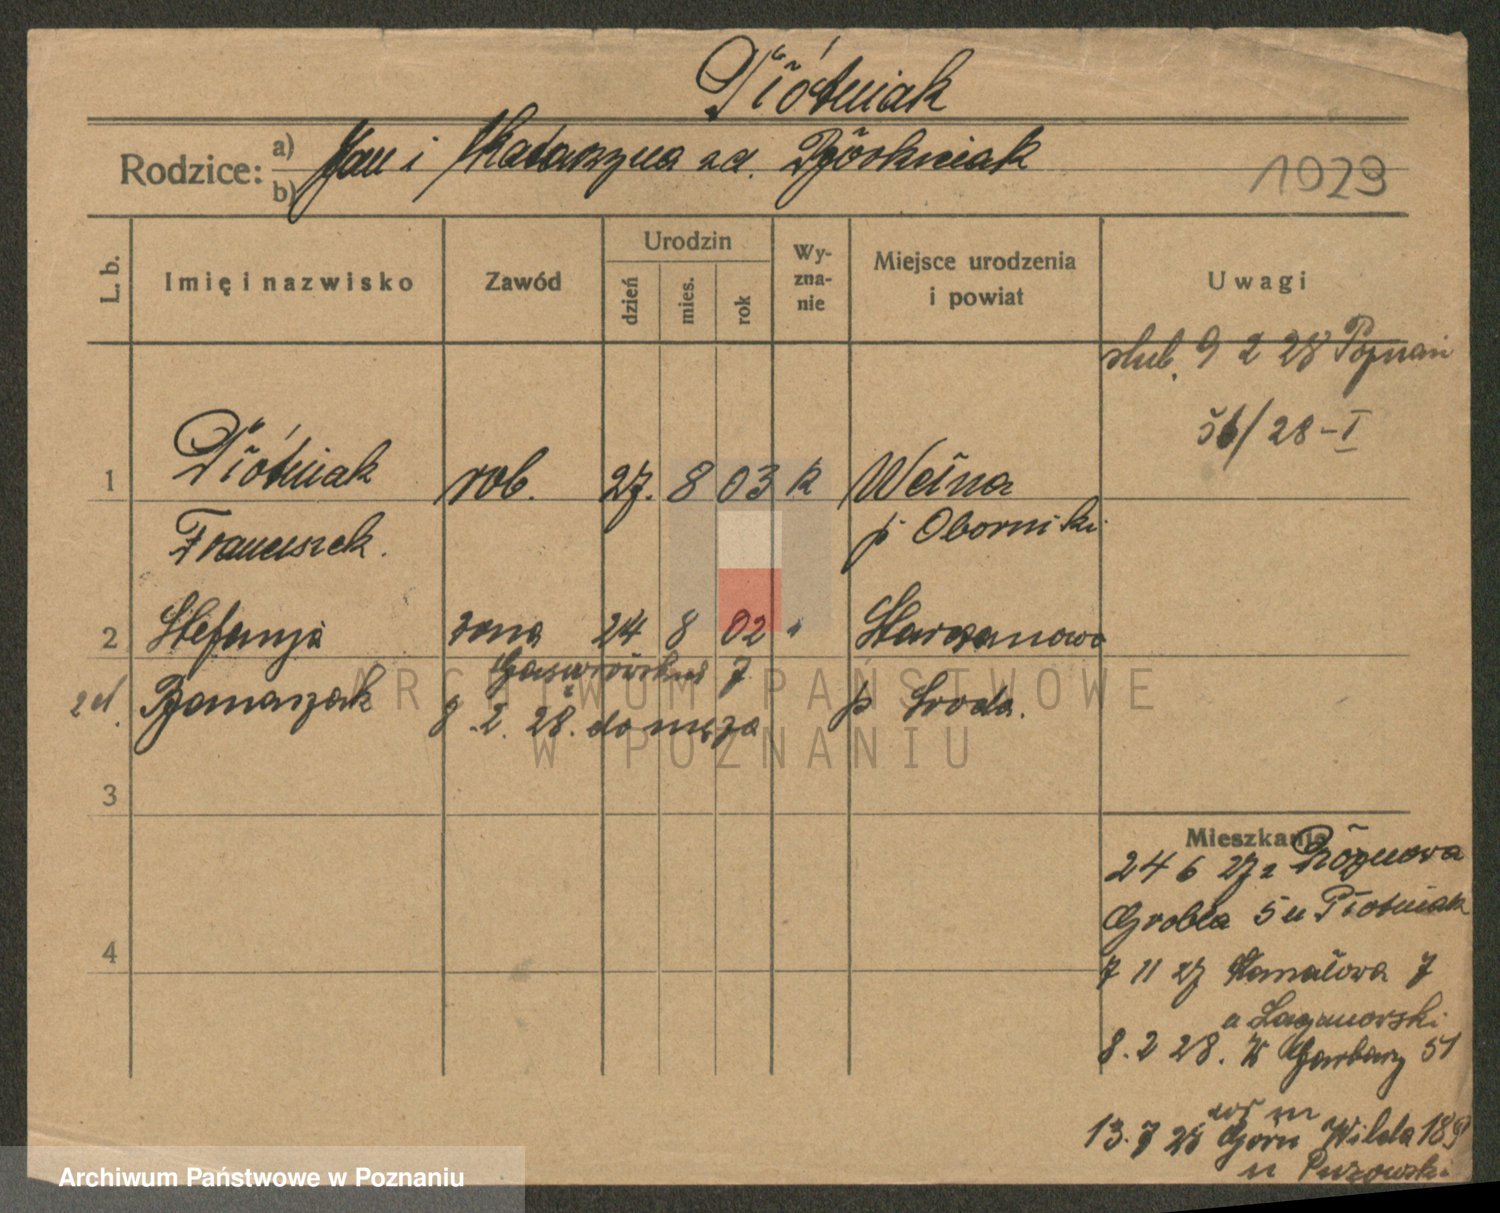 Płótniak
Rodzice: a) b) Jan i Katarzyna zd.
1029
L. b.
Imię i nazwisko
Zawód
Urodzin
dzień
mies.
rok
Wy-
zna-
nie
Miejsce urodzenia
i powiat
Uwagi
ślub. 9 2 28 Poznań
56/28-I
1 Płótniak rob. 27. 8 03 k Wełna
Franciszek. p Oborniki
2 Stefanja żona 24 8 02 "
7
zd. p Środa.
8.2.28. do męża
3
4
Mieszkanie
24 6 27
Grobla 5 u Płótniak
7 11 27 7
u
8.2 28. W Garbary 51
13.7 28 Górn Wilda 189
u
ARCHIWUM PAŃSTWOWE
W POZNANIU
Archiwum Państwowe w Poznaniu